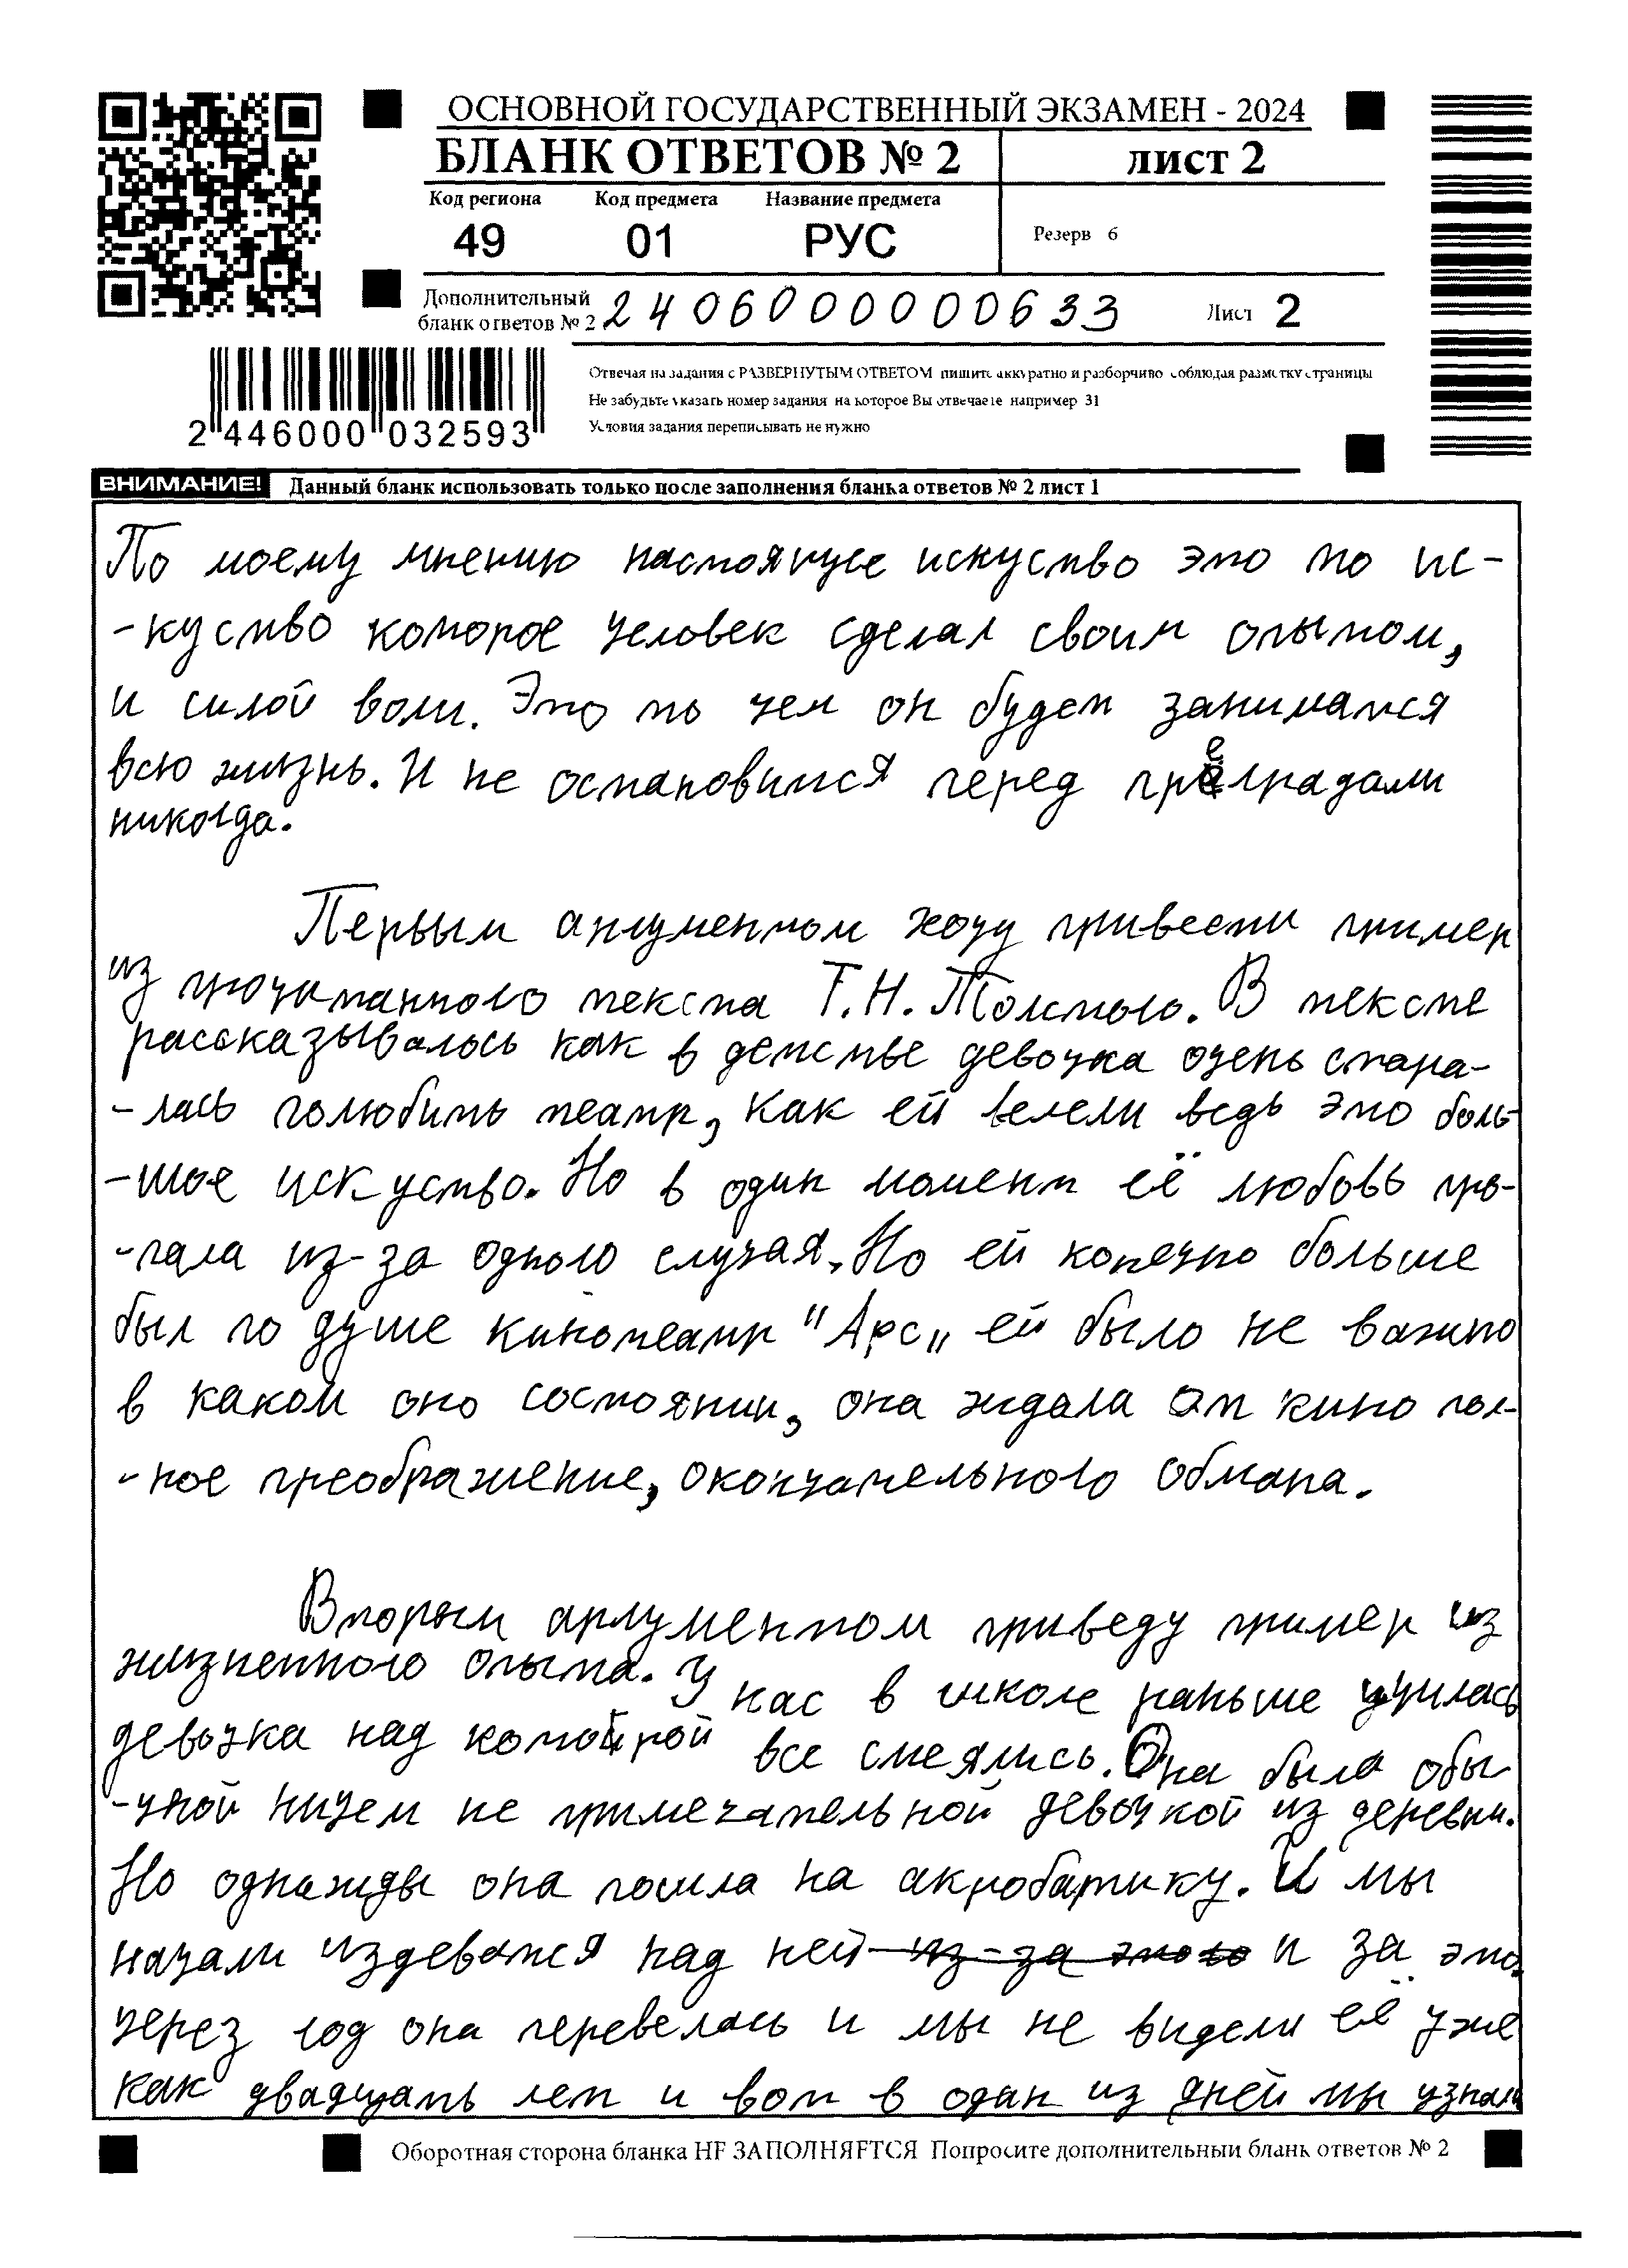 ОСНОВНОЙ ГОСУДАРСТВЕННЫЙ ЭКЗАМЕН - 2024
БЛАНК ОТВЕТОВ № 2
лист 2
Код региона Код предмета Название предмета
49 01 РУС
Резерв 6
Дополнительный
бланк ответов № 2
2406000000633
Лист 2
Отвечая на задания с РАЗВЕРНУТЫМ ОТВЕТОМ пишите аккуратно и разборчиво соблюдая разметку страницы
Не забудьте указать номер задания на которое Вы отвечаете например 31
Условия задания переписывать не нужно
2 446000 032593
ВНИМАНИЕ! Данный бланк использовать только после заполнения бланка ответов № 2 лист 1
По моему мнению настоящее искуство это то ис-
-куство которое человек сделал своим опытом,
и силой воли. Это то чем он будет заниматся
всю жизнь. И не остановится перед преградами
никогда.
Первым аргументом хочу привести пример
из прочитанного текста Т.Н. Толстого. В тексте
рассказывалось как в детстве девочка очень стара-
-лась полюбить театр, как ей велели ведь это боль-
-шое искуство. Но в один момент её любовь про-
-пала из-за одного случая. Но ей конечно больше
был по душе кинотеатр "Арс„ ей было не важно
в каком оно состоянии, она ждала от кино пол-
-ное преображение, окончательного обмана.
Вторым аргументом приведу пример из
жизненного опыта. У нас в школе раньше училась
девочка над которой все смеялись. Она была обы-
-чной ничем не примечательной девочкой из деревни.
Но однажды она пошла на акробатику. И мы
начали издеватся над ней из-за этого и за это.
через год она перевелась и мы не видели её уже
как двадцать лет и вот в один из дней мы узнали
Оборотная сторона бланка НЕ ЗАПОЛНЯЕТСЯ Попросите дополнительный бланк ответов № 2